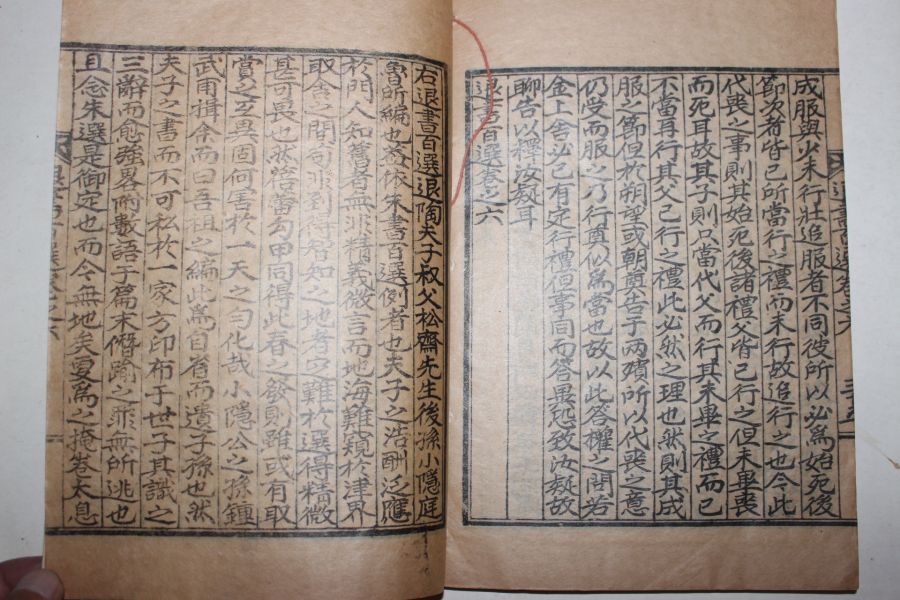 成服與少未行壯追服者不同彼所以必爲始死後
節次者皆已所當行之禮而未行故追行之也今此
代喪之事則其始死後諸禮父皆已行之但未畢喪
而死耳故其子則只當代父而行其未畢之禮而已
不當再行其父已行之禮此必然之理也然則其成
服之節但於朔望或朝奠告于兩殯所以代喪之意
仍受而服之乃行奠似爲當也故以此答權之問若
金上舍必已有定行禮但事同而答異恐致汝疑故
聊告以釋汝疑耳
退書百選卷之六
右退書百選退陶夫子叔父松齋先生後孫小隱庭
所編也蓋依朱書百選例者也夫子之浩酬泛應
於門人知舊者無非精義微言而地海難窺於津界
取舍之間苟非到得智知之地者亦難於選得精微
甚可畏也然管當勾甲同得此春之發則雖或有取
賞之異固何居於一天之勻化哉小隱公之孫鍾
武甫揖余而曰吾祖之編此爲自省而遺子孫也然
夫子之書而不可私於一家方印布于世子其識之
三辭而愈強畧附數語于篇末僭踰之罪無所逃也
且念朱選是御定也而今無地矣寔爲之掩卷太息